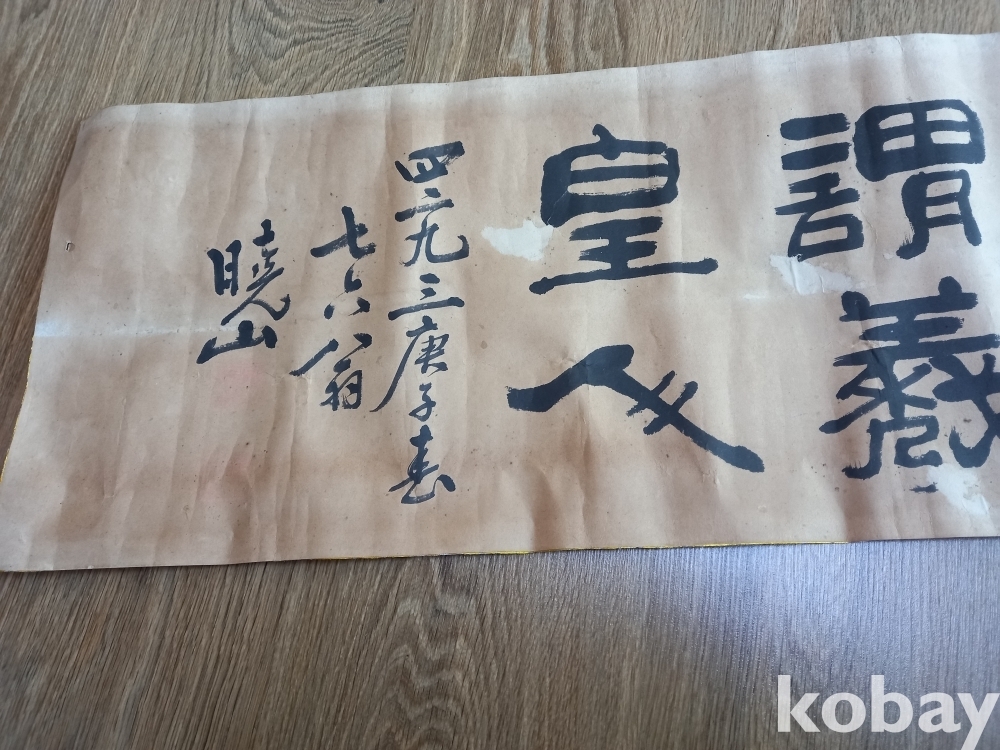 謂羲
皇人
四二九三庚子春
七六八翁
曉山
kobay